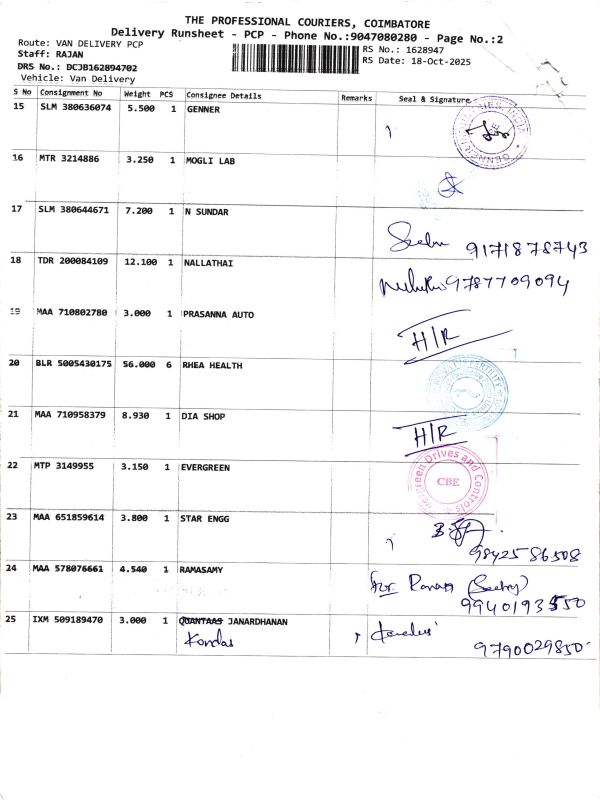 THE PROFESSIONAL COURIERS, COIMBATORE
Delivery Runsheet - PCP - Phone No.:9047080280 - Page No.:2
Route: VAN DELIVERY PCP
Staff: RAJAN
DRS No.: DCJB162894702
Vehicle: Van Delivery
RS No.: 1628947
RS Date: 18-Oct-2025
S No Consignment No Weight PCS Consignee Details Remarks Seal & Signature
15 SLM 380636074 5.500 1 GENNER
16 MTR 3214886 3.250 1 MOGLI LAB
17 SLM 380644671 7.200 1 N SUNDAR
9171878743
18 TDR 200084109 12.100 1 NALLATHAI
9787709094
19 MAA 710802780 3.000 1 PRASANNA AUTO
H/R
20 BLR 5005430175 56.000 6 RHEA HEALTH
21 MAA 710958379 8.930 1 DIA SHOP
H/R
22 MTP 3149955 3.150 1 EVERGREEN
Evergreen Drives and Controls
CBE
23 MAA 651859614 3.800 1 STAR ENGG
9842586508
24 MAA 578076661 4.540 1 RAMASAMY
for
9940193550
25 IXM 509189470 3.000 1 QUANTAAS JANARDHANAN
9790029850